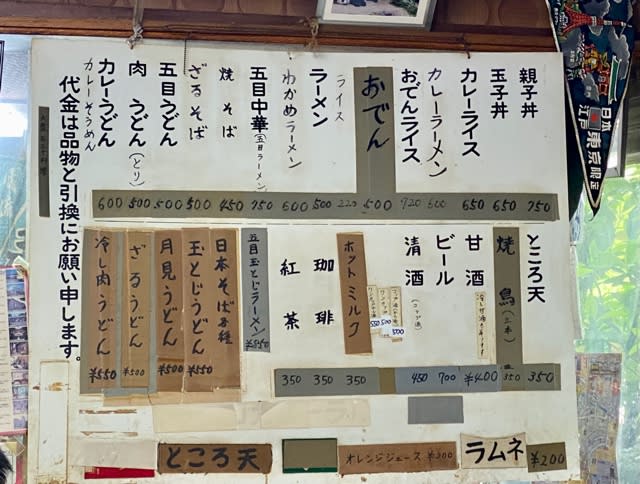 親子丼 750
玉子丼 650
カレーライス 650
カレーラーメン 600
おでんライス 720
おでん 500
ライス 220
ラーメン 500
わかめラーメン 600
五目中華(五目ラーメン) 750
焼そば 450
ざるそば 500
五目うどん 500
肉うどん(とり) 500
カレーうどん 600
カレーそうめん
代金は品物と引換にお願い申します。
ところ天 350
焼鳥(三本) 350
甘酒 ¥400
ビール 700
清酒(コップ酒) 450
ホットミルク 350
珈琲 350
紅茶 350
五目玉とじラーメン
日本そば各種
玉とじうどん ¥550
月見うどん ¥500
ざるうどん ¥500
冷し肉うどん ¥550
ところ天
オレンジジュース ¥200
ラムネ ¥200
日本
江戸
東京